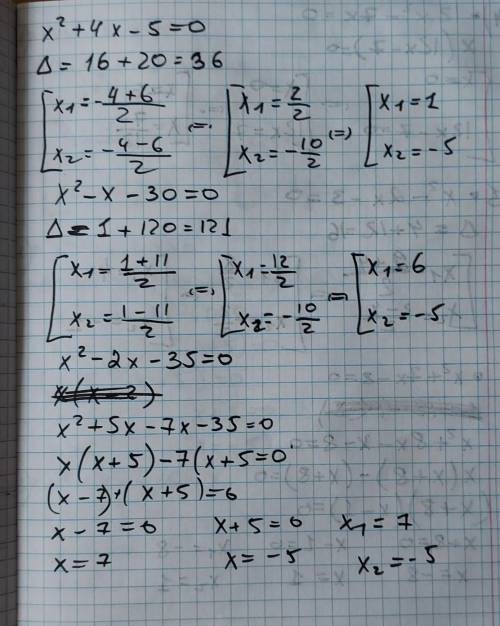 x² + 4x - 5 = 0
Δ = 16 + 20 = 36
[ x₁ = -4+6/2 (=) [ x₁ = 2/2 (=) [ x₁ = 1
x₂ = -4-6/2 x₂ = -10/2 x₂ = -5
x² - x - 30 = 0
Δ = 1 + 120 = 121
[ x₁ = 1+11/2 (=) [ x₁ = 12/2 (=) [ x₁ = 6
x₂ = 1-11/2 x₂ = -10/2 x₂ = -5
x² - 2x - 35 = 0
x(x-2)
x² + 5x - 7x - 35 = 0
x(x+5) - 7(x+5 = 0
(x-7)·(x+5) = 0
x - 7 = 0 x + 5 = 0 x₁ = 7
x = 7 x = -5 x₂ = -5